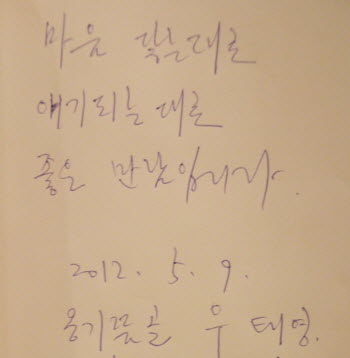 마음 닿는대로
얘기되는 대로
좋은 만남입니다.
2012. 5. 9.
옹기뜸골 우태영.